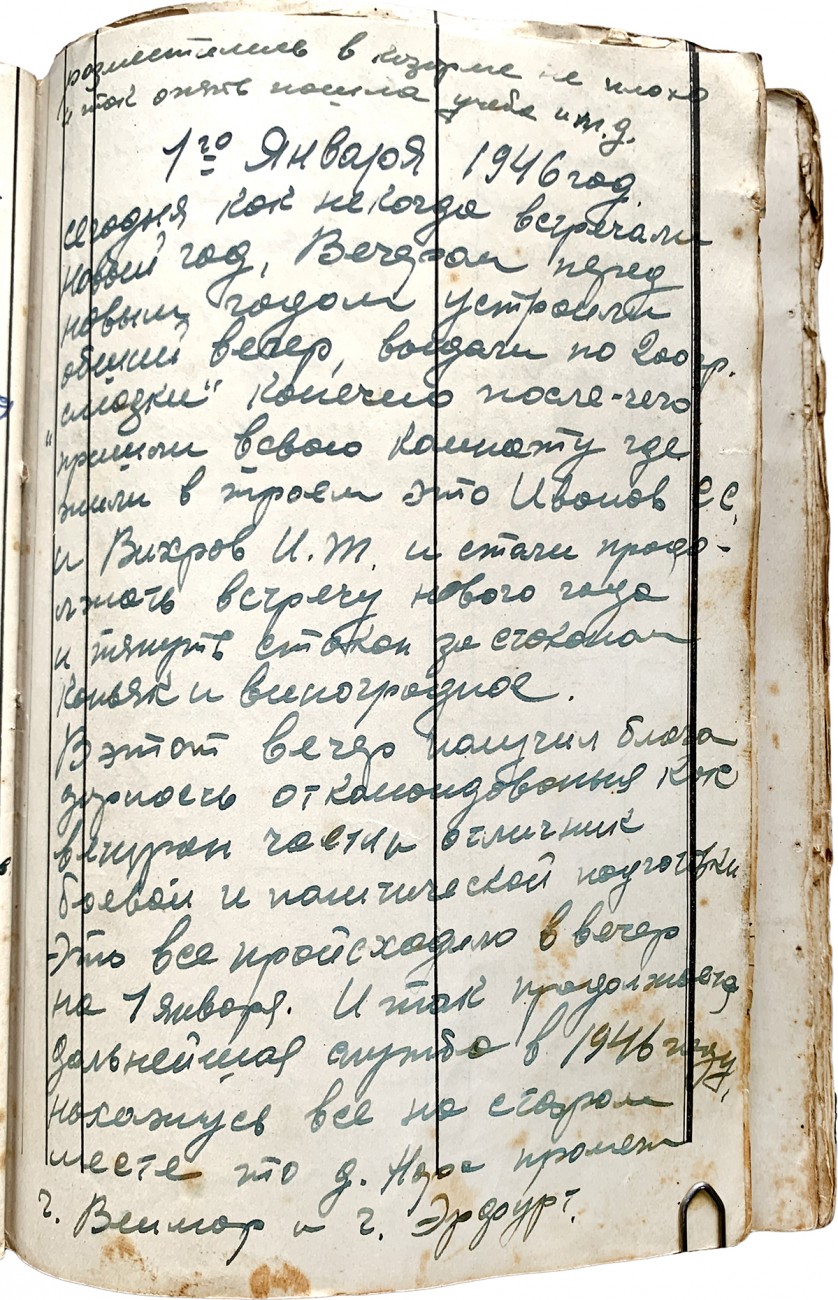 разместились в казарме не плохо
и так опять пошла учеба и т.д.
1го Января 1946 год.
сегодня как некогда встречали
Новый год, Вечером перед
новым годом устроили
общий вечер, выдали по 200гр.
"смазки" конечно после-чего
пришли всвою комнату где
жили в троем это Иванов С.С.
и Вихров И.Т. и стали продо-
лжать встречу нового года
и тянуть стакан за стаканом
коньяк и виноградное.
Вэтот вечер получил блага
дарность откомандования как
части отличник
боевой и политической подготовки
Это все происходило в вечер
на 1 января. И так продолжается
дальнейшая служба в 1946 году,
нахожусь все на старом
месте это д. Нора промеж
г. Веймар и г. Эрфурт.